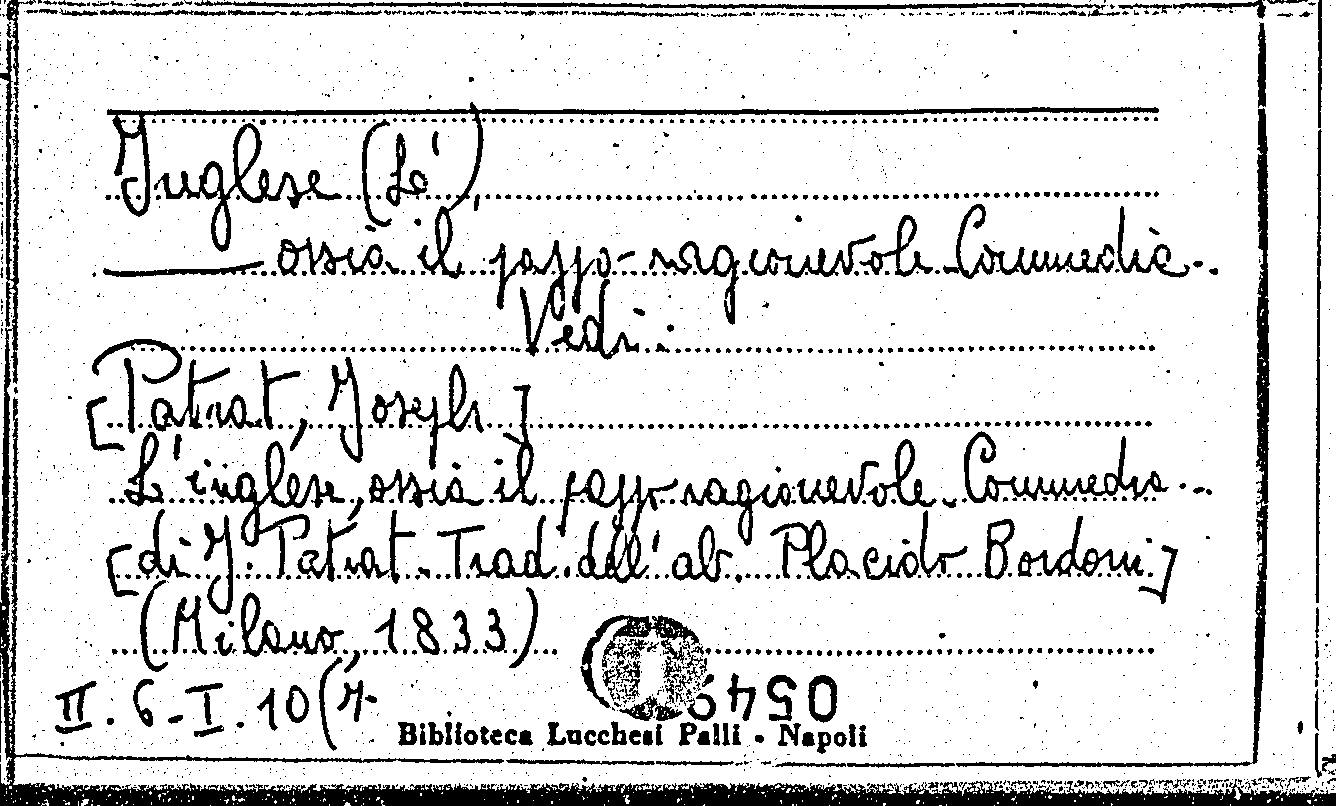 Inglese (L')
ossia il pazzo-ragionevole. Commedia..
Vedi:
[Patrat, Joseph]
L'inglese, ossia il pazzo ragionevole. Commedia...
[di J. Patrat. Trad. dell'ab. Placido Bordoni]
(Milano, 1833)
II. 6-I. 10(4
Biblioteca Lucchesi Palli - Napoli